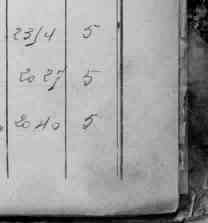 23/4 5
20 27 5
20 40 5